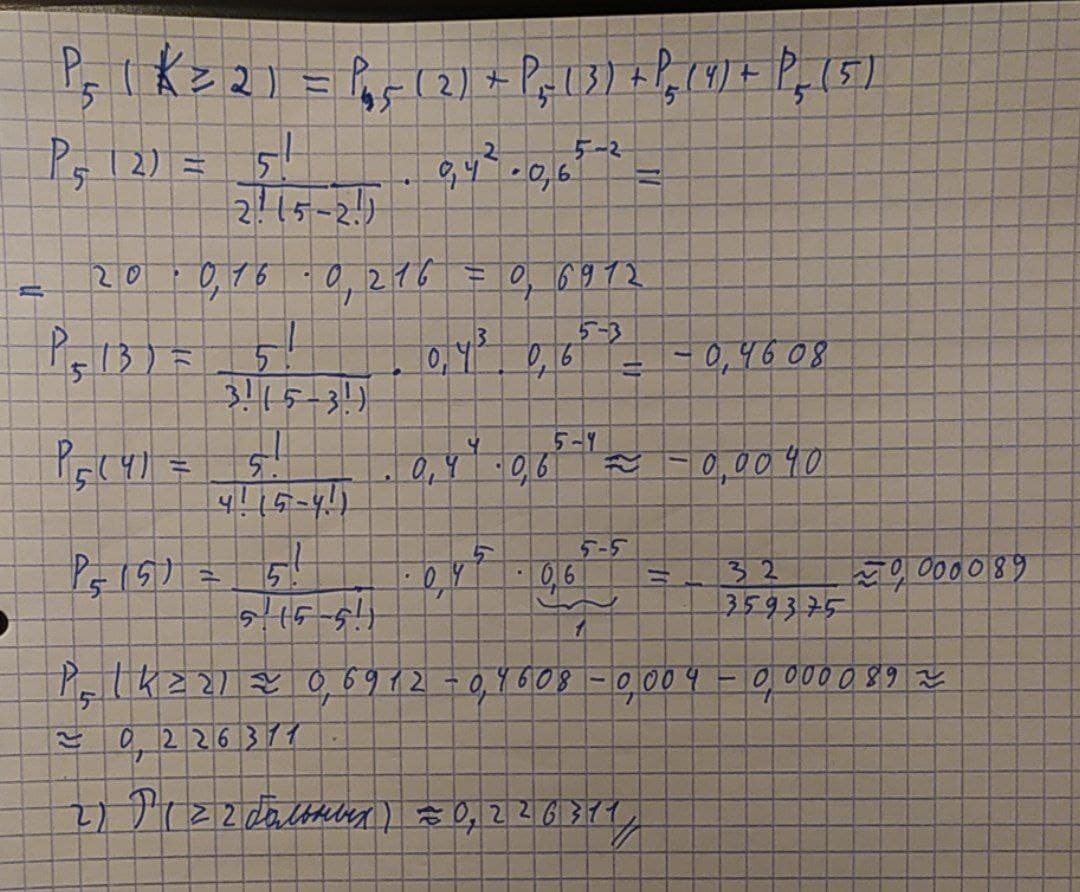 P₅ (K ≥ 2) = P₅ (2) + P₅ (3) + P₅ (4) + P₅ (5)
P₅ (2) = 5! / 2! (5-2!) · 0,4² · 0,6⁵⁻² =
= 20 · 0,16 · 0,216 = 0,6912
P₅ (3) = 5! / 3! (5-3!) · 0,4³ · 0,6⁵⁻³ = -0,4608
P₅ (4) = 5! / 4! (5-4!) · 0,4⁴ · 0,6⁵⁻⁴ ≈ -0,0040
P₅ (5) = 5! / 5! (5-5!) · 0,4⁵ · 0,6⁵⁻⁵ = - 32 / 359375 ≈ -0,000089
1
P₅ (K ≥ 2) ≈ 0,6912 - 0,4608 - 0,004 - 0,000089 ≈
≈ 0,226311
2) P (≥ 2 больных) ≈ 0,226311